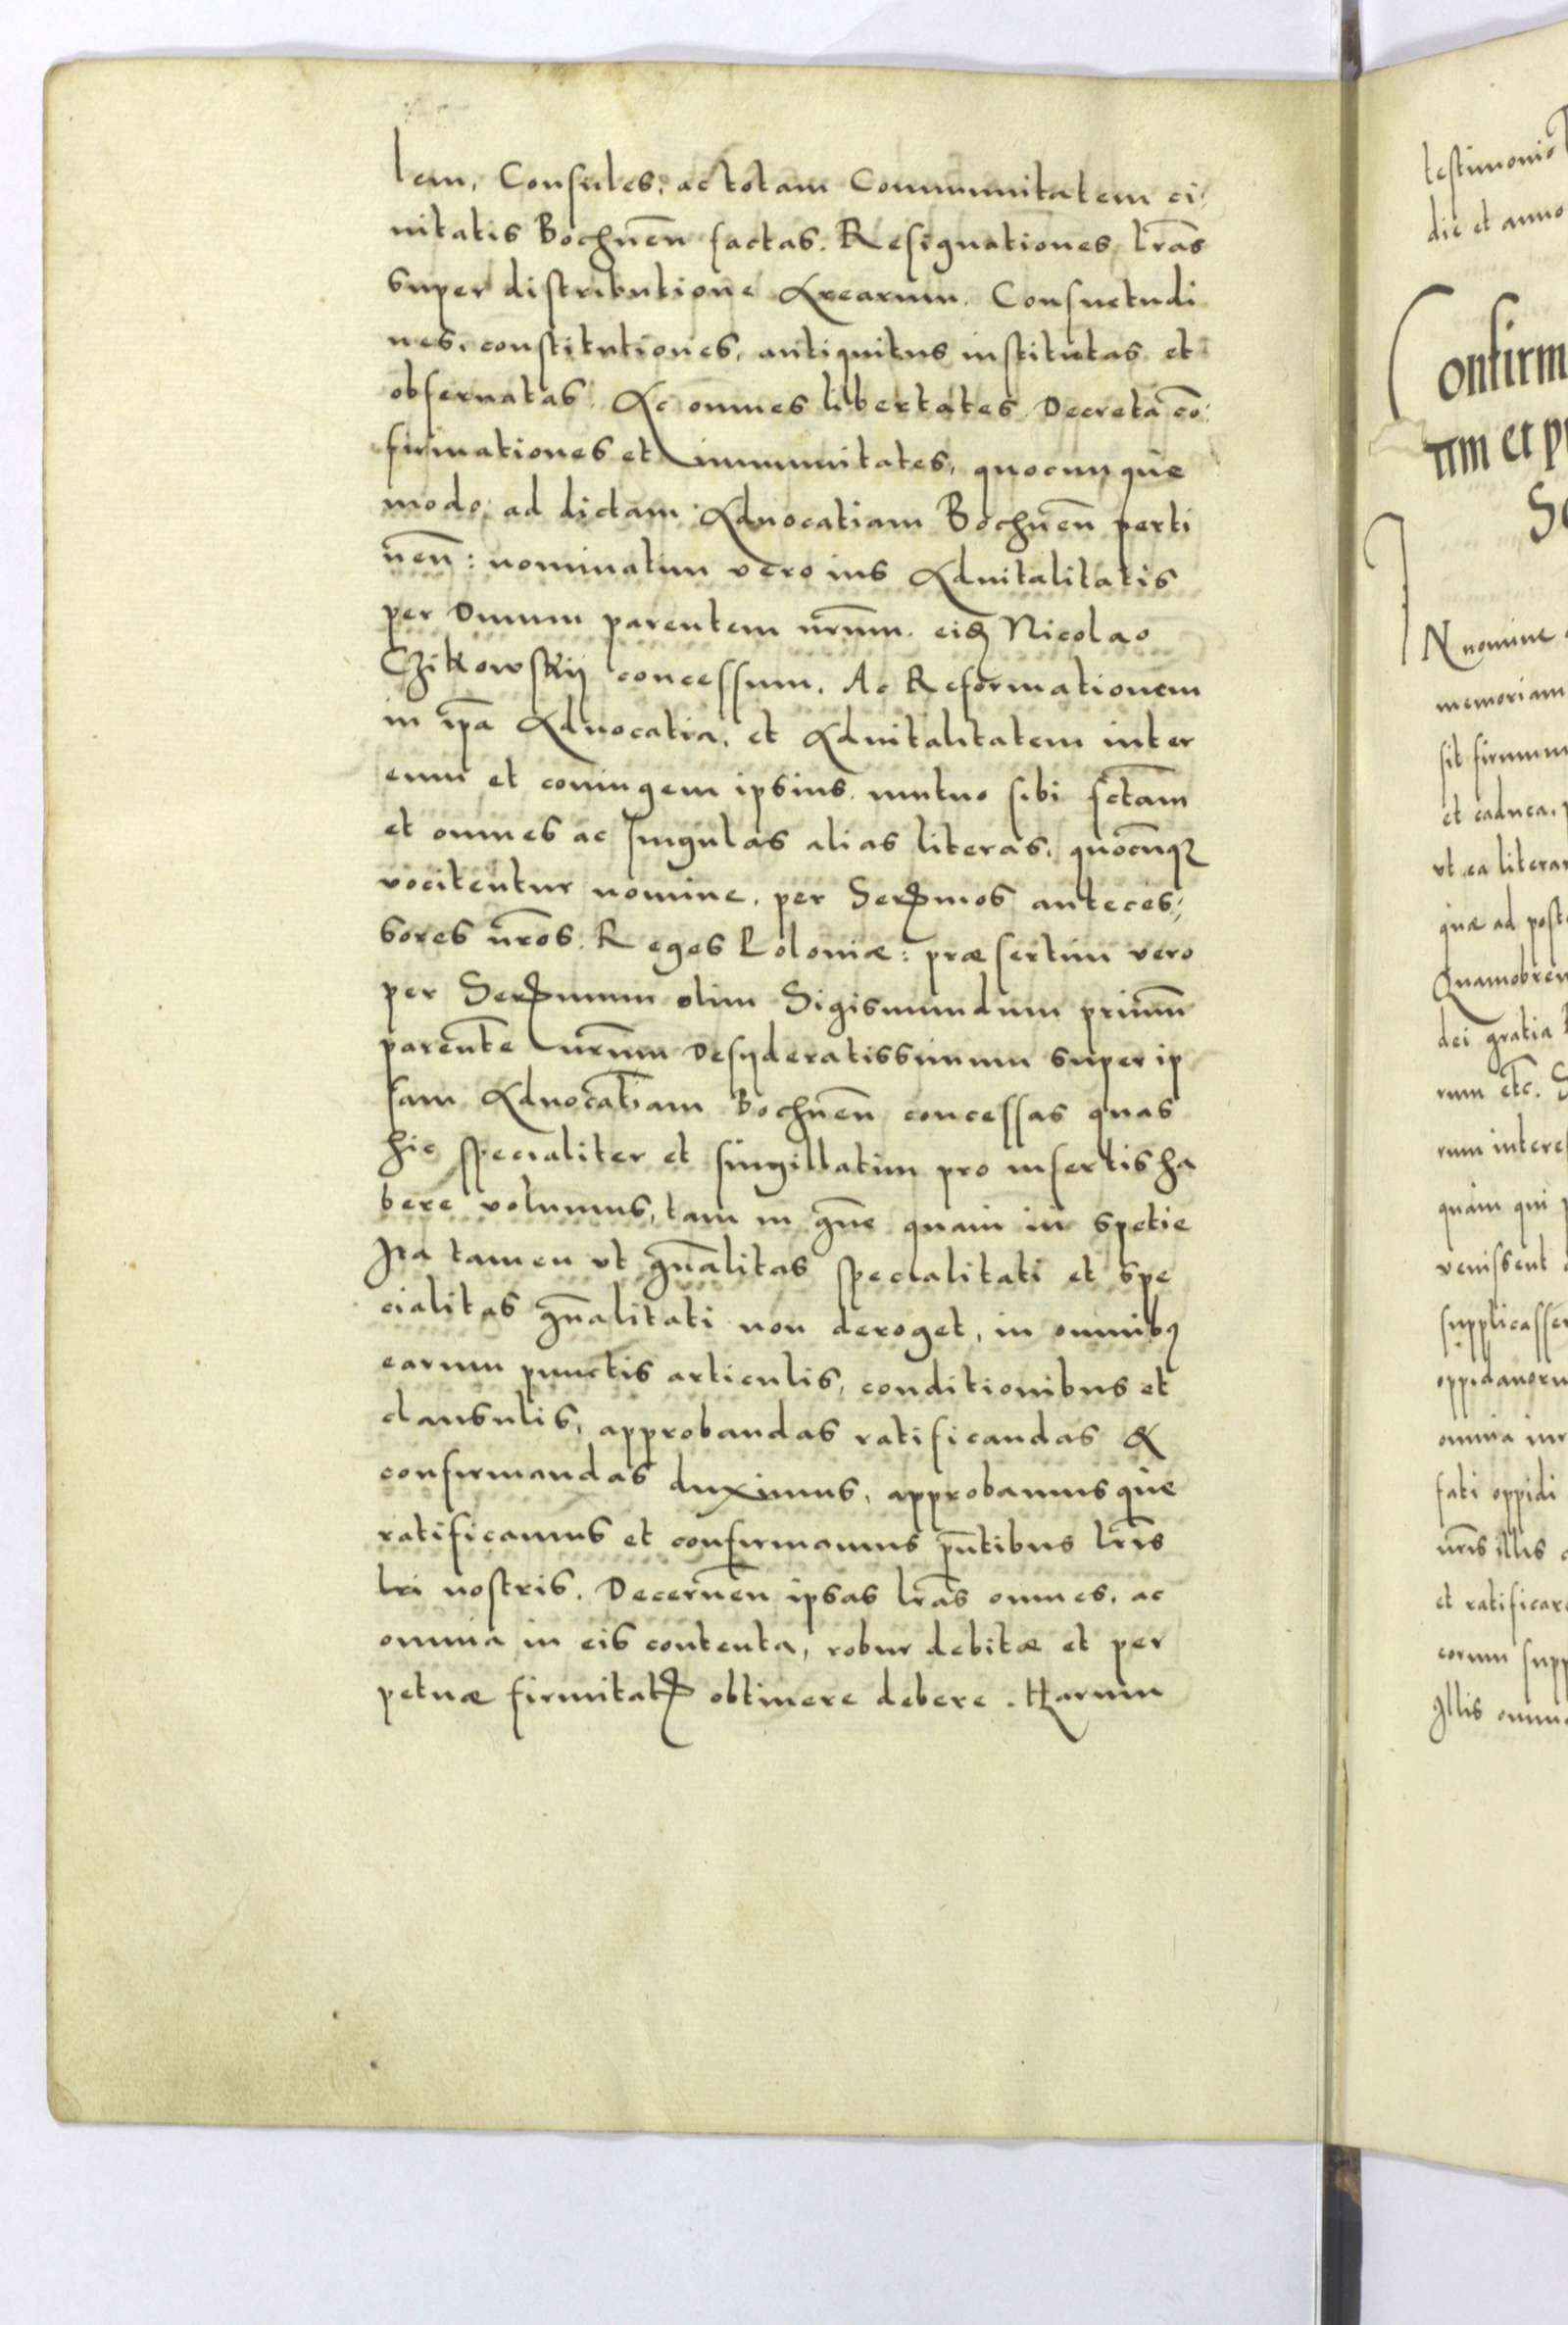 lem, Consules, ac totam Communitatem ci-
uitatis Bochneñ factas. Resignationes l̃ras
super distributione Arearum. Consuetudi
nes, constitutiones, antiquitus institutas et
obseruatas. Ac omnes libertates Decreta cõ-
firmationes et immunitates, quocunque
modo ad dictam Aduocatiam Bochneñ perti
neñ: nominatim vero ius Aduitalitatis
per Diuum parentem nr̃um. eidẽ Nicolao
Czikowskij concessum. Ac Reformationem
in ip̃a Aduocatia, et Aduitalitatem inter
eum et coniugem ipsius. mutuo sibi fct̃am
et omnes ac singulas alias literas, quocũqꝫ
vocitentur nomine. per Serẽmos anteces-
sores nr̃os. Reges Poloniæ: præsertim vero
per Serẽmum olim Sigismundum primũ
parent̃e nr̃um Desyderatissimum super ip
sam Aduocat̃iam Bochneñ concessas quas
hic specialiter et singillatim pro insertis ha
bere volumus, tam in gñe quam in spetie
Ita tamen vt gñalitas specialitati et spe
cialitas gñalitati non deroget, in omnibꝯ
earum punctis articulis, conditionibus et
clausulis, approbandas ratificandas &
confirmandas duximus, approbamusque
ratificamus et confirmamus pñtibus l̃ris
lri nostris. Decerneñ ipsas l̃ras omnes, ac
omnia in eis contenta, robur debitæ et per
petuæ firmitatꝭ obtinere debere. Harum
testimonio
die et anno
Confirm
um et p
S
IN nomine
memoriam
sit firmum
et caduca,
vt ea litera
quæ ad post
Quamobrem
dei gratia
rum etc̃. S
rum intere
quàm qui p
venissent
supplicasse
oppidanoru
omnia iur
fati oppidi
nr̃is illis
et ratificar
eorum supp
Illis omn